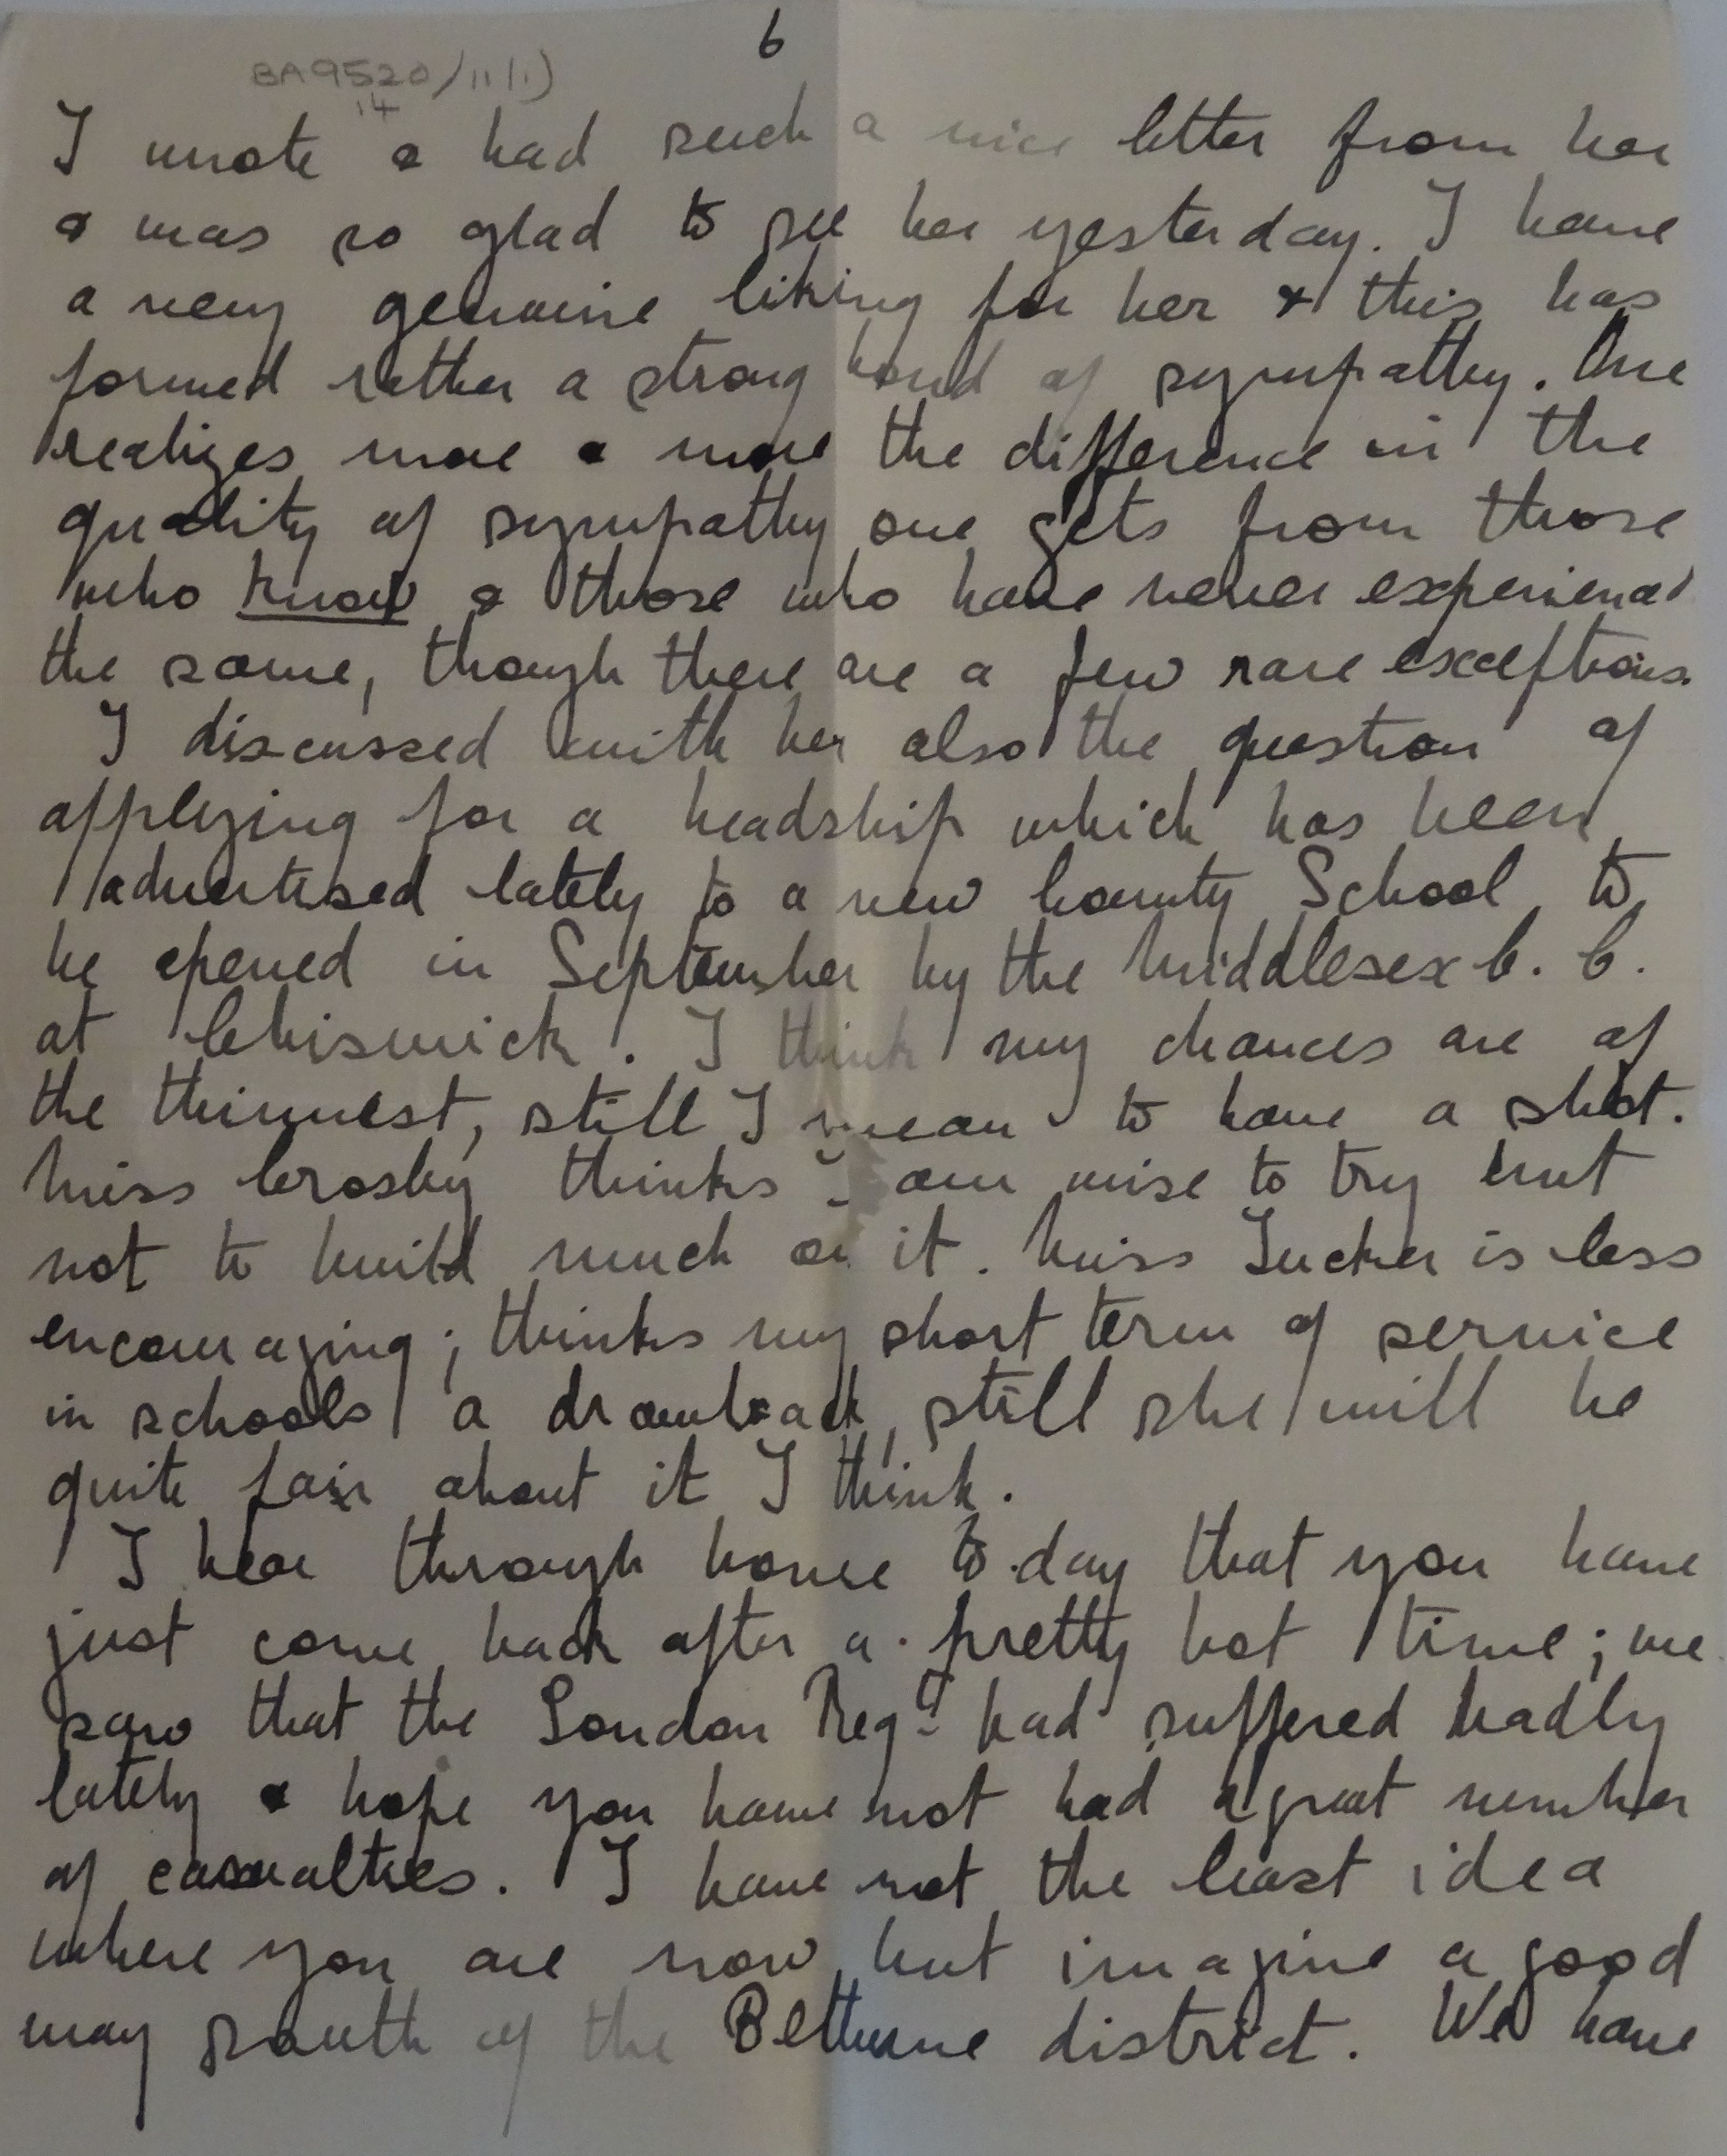 6
BA9520/11(1)
14
I wrote & had such a nice letter from her
& was so glad to see her yesterday. I have
a very genuine liking for her & this has
formed rather a strong bond of sympathy. One
realizes more & more the difference in the
quality of sympathy one gets from those
who know & those who have never experienced
the same, though there are a few rare exceptions.
I discussed with her also the question of
applying for a headship which has been
advertised lately to a new County School to
be opened in September by the Middlesex C. C.
at Chiswick. I think my chances are of
the thinnest, still I mean to have a shot.
Miss Crosby thinks I am wise to try but
not to build much on it. Miss Tucker is less
encouraging; thinks my short term of service
in schools a drawback, still she will be
quite fair about it I think.
I hear through home to-day that you have
just come back after a pretty hot time; we
saw that the London Regt had suffered badly
lately & hope you have not had a great number
of casualties. I have not the least idea
where you are now but imagine a good
way south of the Bethune district. We have